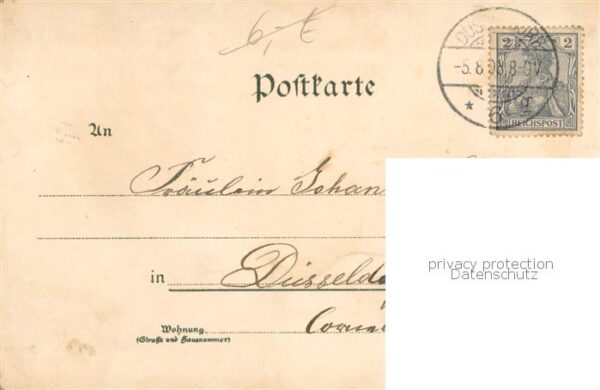 6,- £
Postkarte
DÜS
-5.8.03.8-9V.
* 6 q
2 2
REICHSPOST
An
Fräulein Johan
privacy protection
Datenschutz
in Düsseldo
Corne
Wohnung
(Straße und Hausnummer)